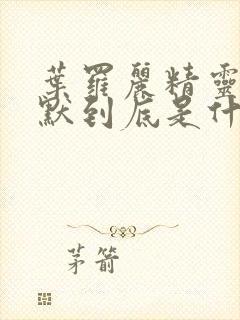 葉羅麗精靈
默到底是什
茅箭